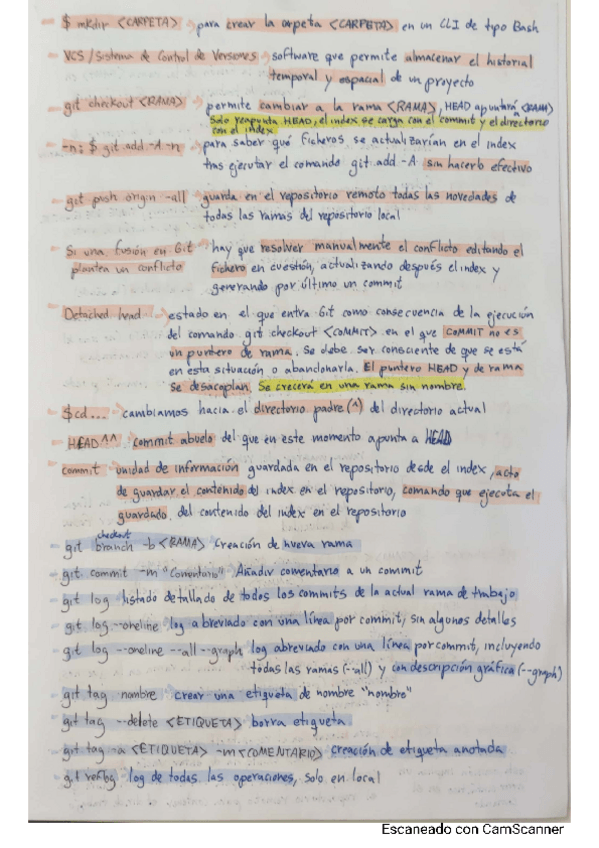 - $ mkdir <CARPETA> → para crear la carpeta <CARPETA> en un CLI de tipo Bash
- VCS / Sistema de Control de Versiones → software que permite almacenar el historial
temporal y espacial de un proyecto
- git checkout <RAMA> → permite cambiar a la rama <RAMA>, HEAD apuntará a <RAMA>
Solo reapunta HEAD, el index se carga con el commit y el directorio
con el index
- -n: $ git add -A -n → para saber qué ficheros se actualizarían en el index
tras ejecutar el comando git add -A sin hacerlo efectivo
- git push origin --all → guarda en el repositorio remoto todas las novedades de
todas las ramas del repositorio local
- Si una fusión en Git → hay que resolver manualmente el conflicto editando el
plantea un conflicto fichero en cuestión, actualizando después el index y
generando por último un commit
- Detached head → estado en el que entra Git como consecuencia de la ejecución
del comando git checkout <COMMIT> en el que COMMIT no es
un puntero de rama. Se debe ser consciente de que se está
en esta situación o abandonarla. El puntero HEAD y de rama
se desacoplan. Se crecerá en una rama sin nombre.
- $cd... → cambiamos hacia el directorio padre (^) del directorio actual
- HEAD^^ → commit abuelo del que en este momento apunta a HEAD
commit → unidad de información guardada en el repositorio desde el index, acto
de guardar el contenido del index en el repositorio, comando que ejecuta el
guardado del contenido del index en el repositorio
checkout
- git branch -b <RAMA> creación de nueva rama
- git commit -m "Comentario" Añadir comentario a un commit
- git log listado detallado de todos los commits de la actual rama de trabajo
- git log --oneline log abreviado con una línea por commit, sin algunos detalles
- git log --oneline --all --graph log abreviado con una línea por commit, incluyendo
todas las ramas (--all) y con descripción gráfica (--graph)
- git tag nombre crear una etiqueta de nombre "nombre"
- git tag --delete <ETIQUETA> borra etiqueta
- git tag -a <ETIQUETA> -m <COMENTARIO> creación de etiqueta anotada
- git reflog log de todas las operaciones, solo en local
Escaneado con CamScanner